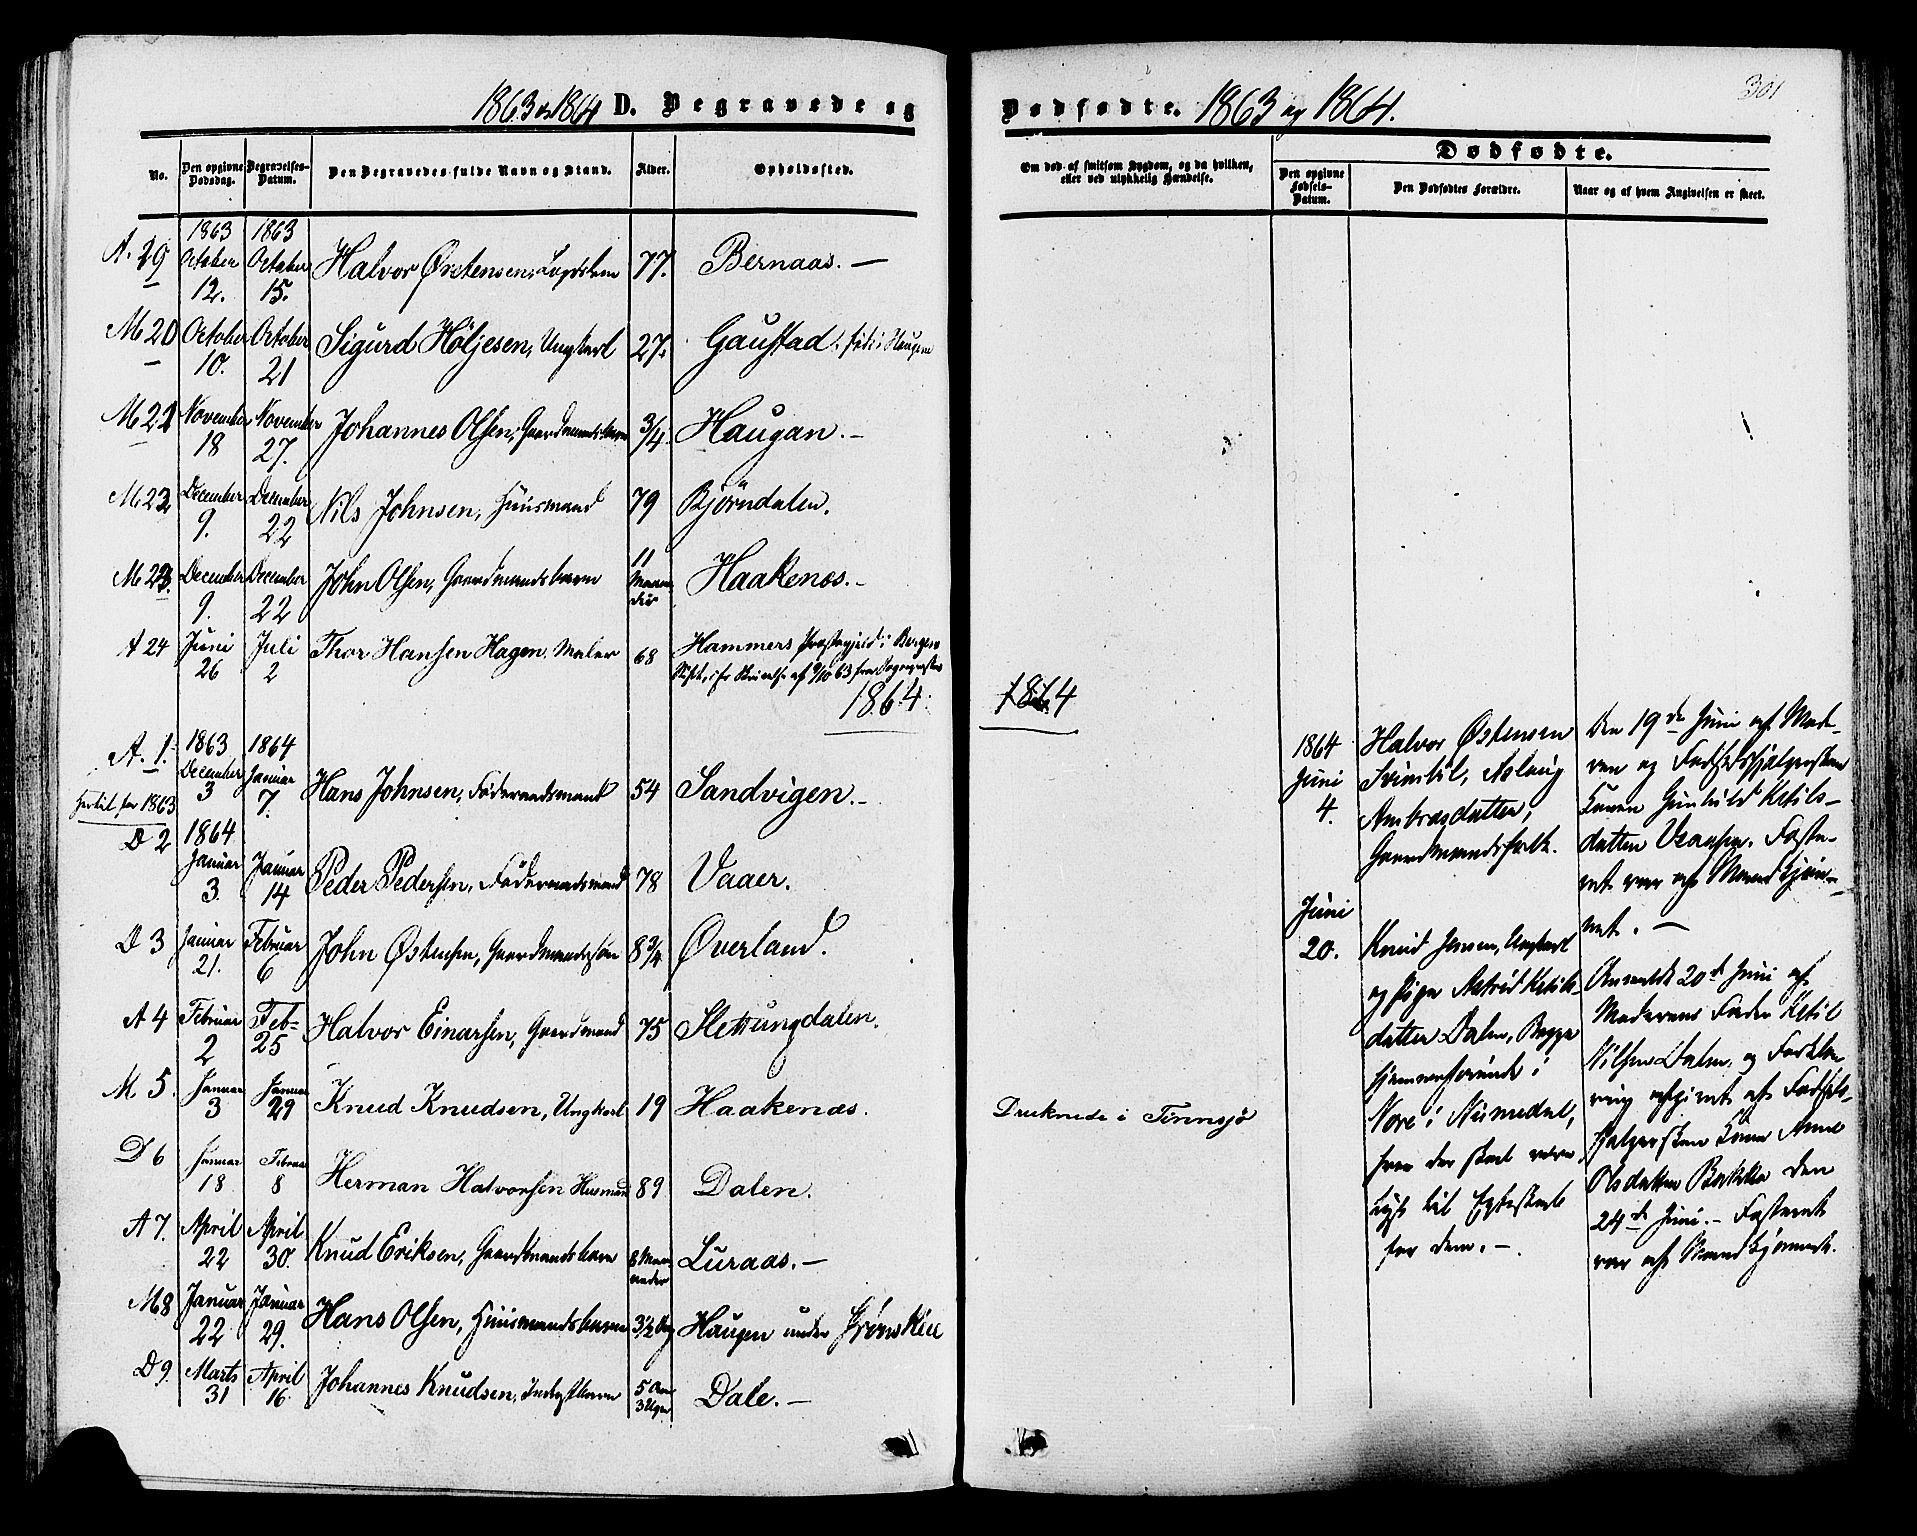 1863 og 1864 D. Begravede og
No.
Den opgivne Dødsdag.
Begravelses-Datum.
Den Begravedes fulde Navn og Stand.
Alder.
Opholdssted.
A. 29 1863 October 12. 1863 October 15. Halvor Østensen, 77. Bernaas. —
M 20 October 10. October 21 Sigurd Höljesen, Ungkarl 27. Gaustad, født i Haugen
M 21 November 18 November 27. Johannes Olsen, Gaardmandsbarn 3/4 Haugan. —
M 22 December 9. December 22 Nils Johnsen, Huusmand 79 Bjørndalen.
M 23. December 9. December 22 John Olsen, Gaardmandsbarn 11 Maaneder Haakenæs. —
A 24 Juni 26 Juli 2 Thor Hansen Hagen, Maler 68 Hammers Præstegjeld i Bergens
Stift, af 9/10 63 fra
1864.
A. 1. 1863 December 3 1864 Januar 7. Hans Johnsen, Föderaadsmand 54 Sandvigen. —
hertil for 1863
D 2 1864 Januar 3. Januar 14 Peder Pedersen, Föderaadsmand 78 Vaaer.
D 3 Januar 21. Februar 6 John Østensen, Gaardmandssøn 8 3/4 Øverland.
A 4 Februar 2 Feb- 25 Halvor Einarsen, Gaardmand 75 Slettungdalen.
M 5. Januar 3 Januar 29 Knud Knudsen, Ungkarl 19 Haakenæs.
D 6 Januar 18 Februar 8 Herman Halvorsen Husmand 89 Dalen.
A 7. April 22 April 30. Knud Eriksen, Gaardmandsbarn 8 Maaneder Luraas. —
M 8 Januar 22 Januar 29. Hans Olsen, Huusmandsbarn 3 1/2 Haugen under
D 9. Marts 31 April 16 Johannes Knudsen, Inderstbarn 5 Aar 3 Uger Dale. —
Dødfødte. 1863 og 1864.
301
Om død af smitsom Sygdom, og da hvilken,
eller ved ulykkelig Hændelse.
Dødfødte.
Den opgivne Fødsels-Datum.
Den Dødfødtes Forældre.
Naar og af hvem Angivelsen er skeet.
1864
Druknede i Tinnsjø
1864
Juni
4.
Halvor Østensen
Aslaug
Gaardmandsfolk.
Den 19de Juni af Mode-
ren og Fødselshjælpersken
Konen Gunhild Ketils-
datter Foste-
ret var af Mandkjøn-
net. —
Juni
20.
Knud Jensen, Ungkarl
og Pige Astrid Ketils-
datter Dalen, Begge
hjemmehørende i
Nore i Numedal,
hvor der skal være
lyst til Egteskab
for dem. —
Anmeldt 20de Juni af
Moderens Fader Ketil
Nilsen Dalen, og Forkla-
ring afgivet af Fødsels-
hjælpersken Konen Anne
Olsdatter Bakken den
24de Juni. — Fosteret
var af Mandkjønnet.